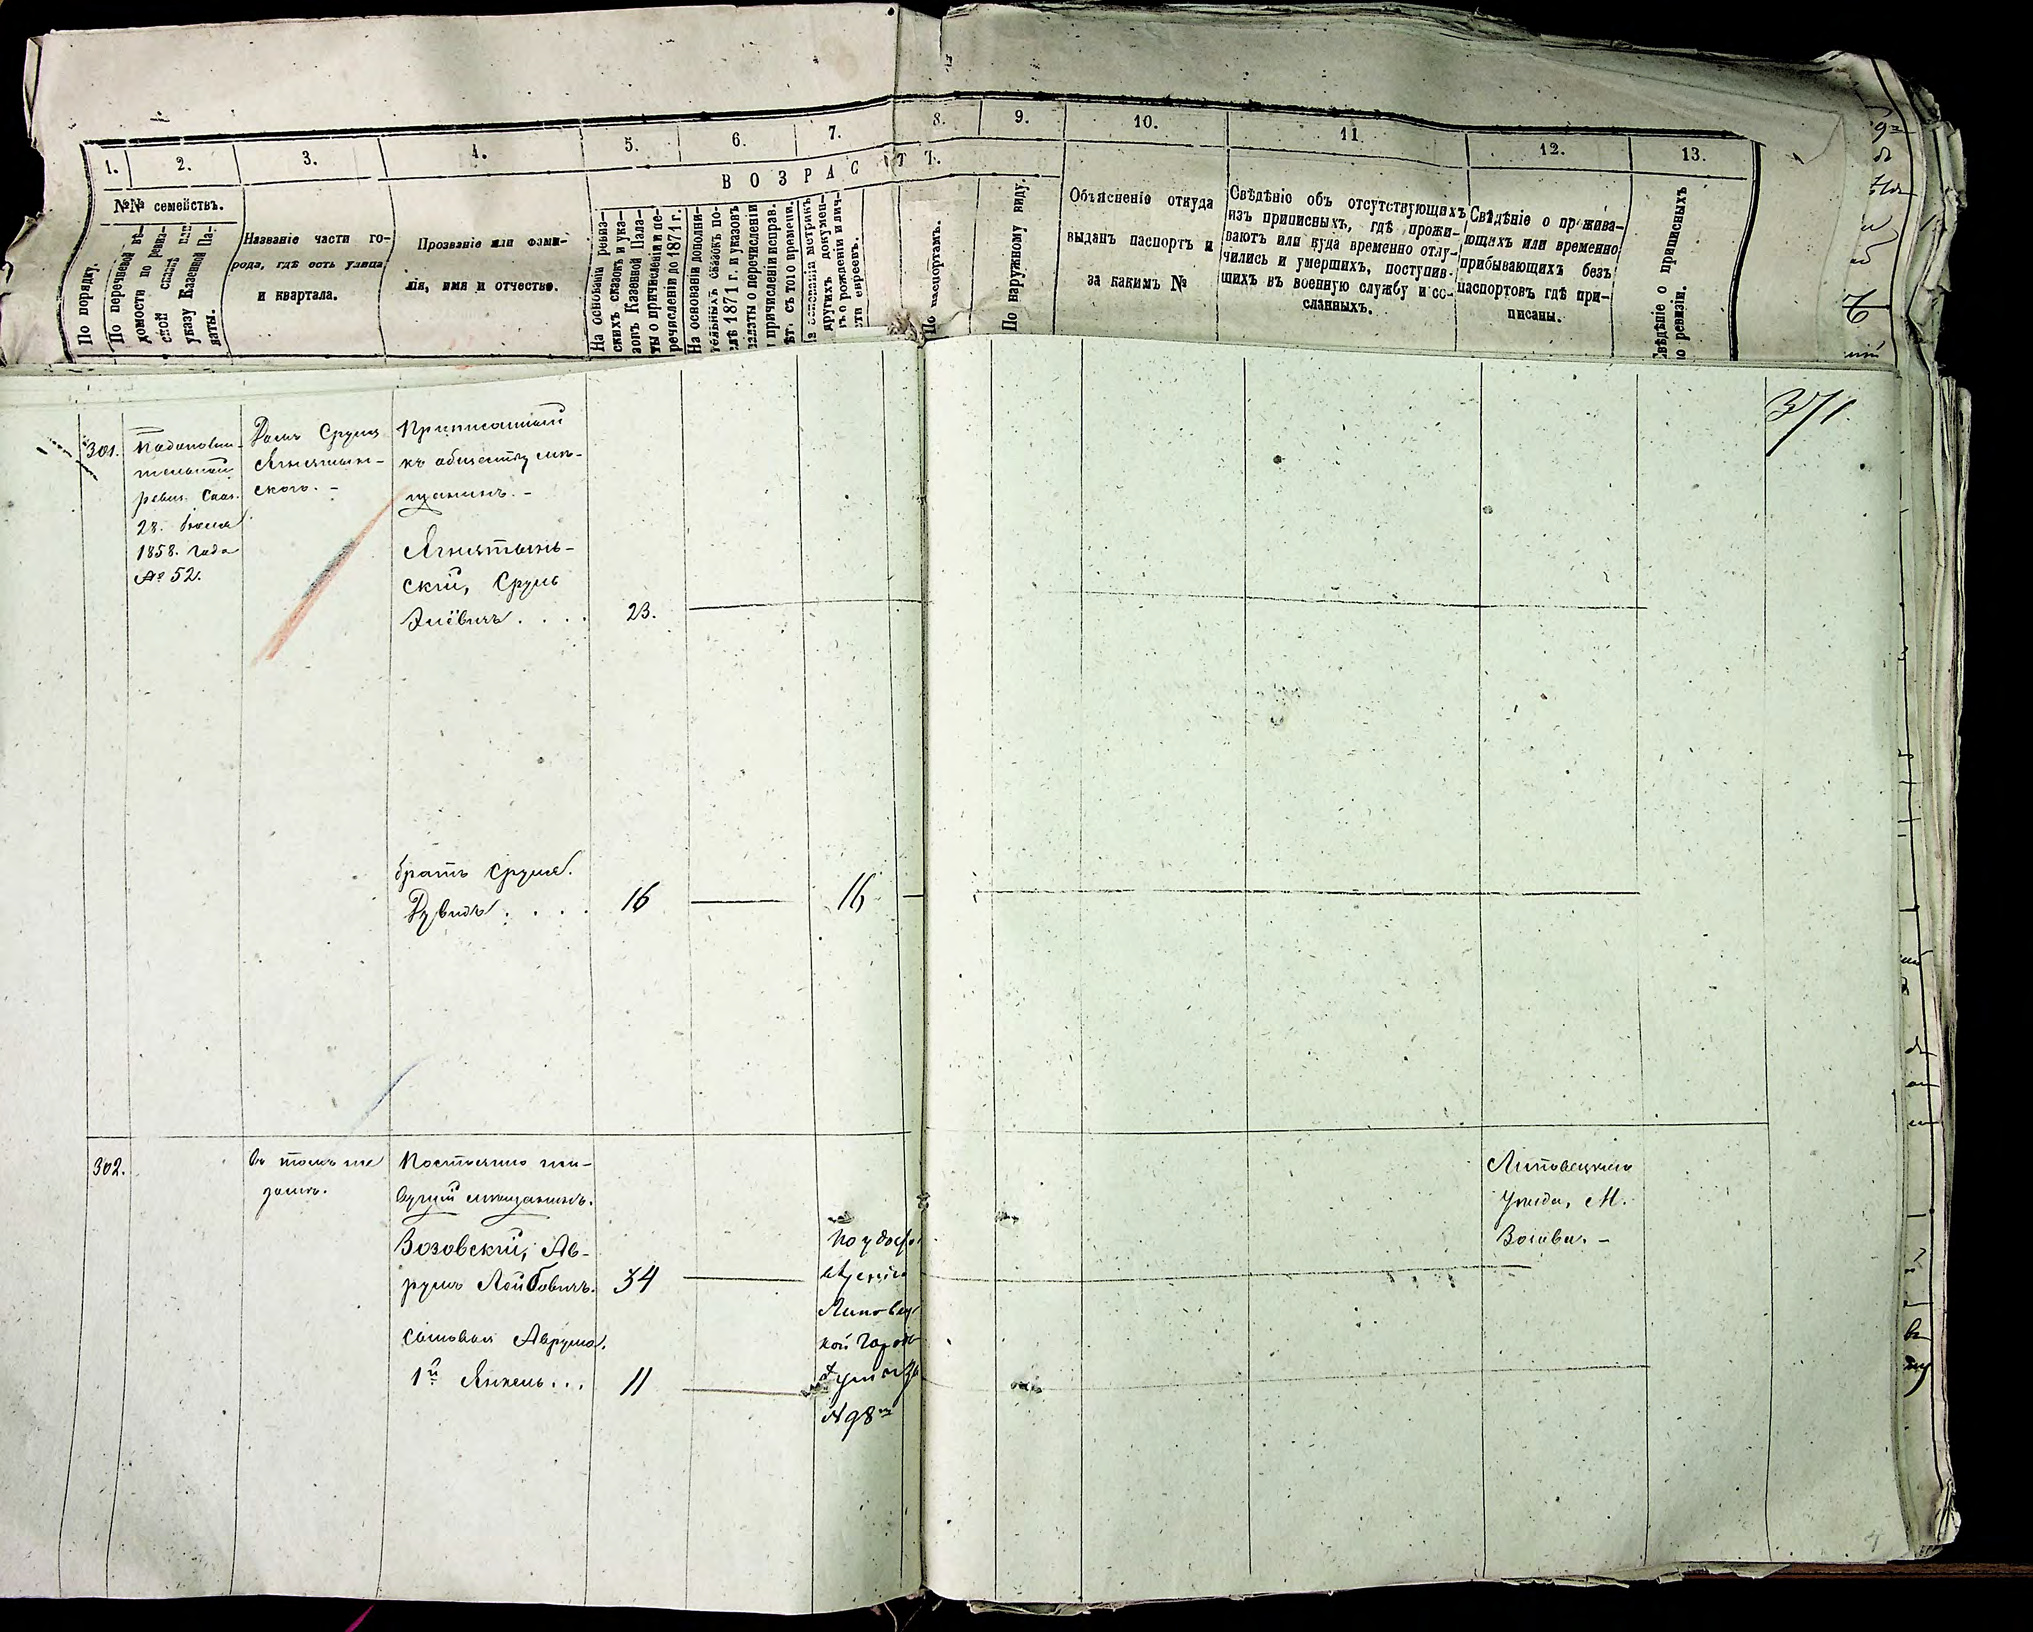 1.
2.
3.
4.
5.
6.
7.
8.
9.
10.
11
12.
13.
ВОЗРАСТЪ.
№№ семействъ.
По порядку.
По перечневой вѣ-
домости по ревиз-
ской сказкѣ или
указу Казенной Па-
латы.
Названіе части го-
рода, гдѣ есть улица
и квартала.
Прозваніе или фами-
лія, имя и отчество.
На основаніи ревиз-
скихъ сказокъ и ука-
зовъ Казенной Пала-
ты о причисленіи и пе-
речисленіи до 1871 г.
На основаніи дополни-
тельныхъ сказокъ по-
слѣ 1871 г. и указовъ
палаты о перечисленіи
и причисленіи исправ.
лѣт. съ того времени.
На основаніи метрикъ
и другихъ докумен-
тъ о рожденіи и лич-
сти евреевъ.
По паспортамъ.
По наружному виду.
Объясненіе откуда
выданъ паспортъ и
за какимъ №
Свѣдѣніе объ отсутствующихъ
изъ приписныхъ, гдѣ прожи-
ваютъ или куда временно отлу-
чились и умершихъ, поступив-
шихъ въ военную службу и со-
сланныхъ.
Свѣдѣніе о прожива-
ющихъ или временно
прибывающихъ безъ
паспортовъ гдѣ при-
писаны.
Свѣдѣніе о приписныхъ
по ревизіи.
371
301.
По дополни-
тельной
ревиз. сказ.
23. Іюня
1858. года
№ 52.
Домъ Срума
Ягнятин-
ского. -
Приписанный
къ обществу мѣ-
щанинъ. -
Ягнятинь-
скій, Срумъ
Элёвичъ . . . . 23.
братъ Срума.
Дувидъ . . . . 16
16
302.
въ томъ же
домѣ.
Постоянно жи-
вущій мѣщанинъ.
Возовскій, Ав-
румъ Лейбовичъ. 34
сыновья Аврума.
1й Янкель . . . 11
По удосто-
вѣренію
Липовец-
кой город.
Думы за
№ 98
Липовецкаго
уѣзда, М.